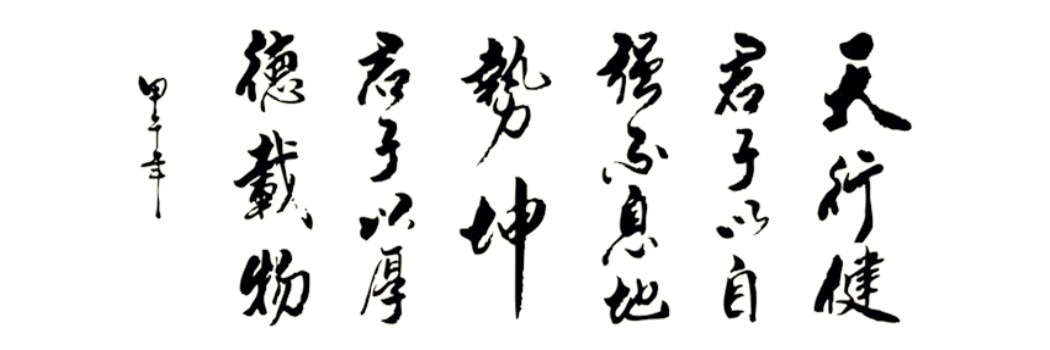 天行健
君子以自
強不息地
勢坤
君子以厚
德載物
甲午年